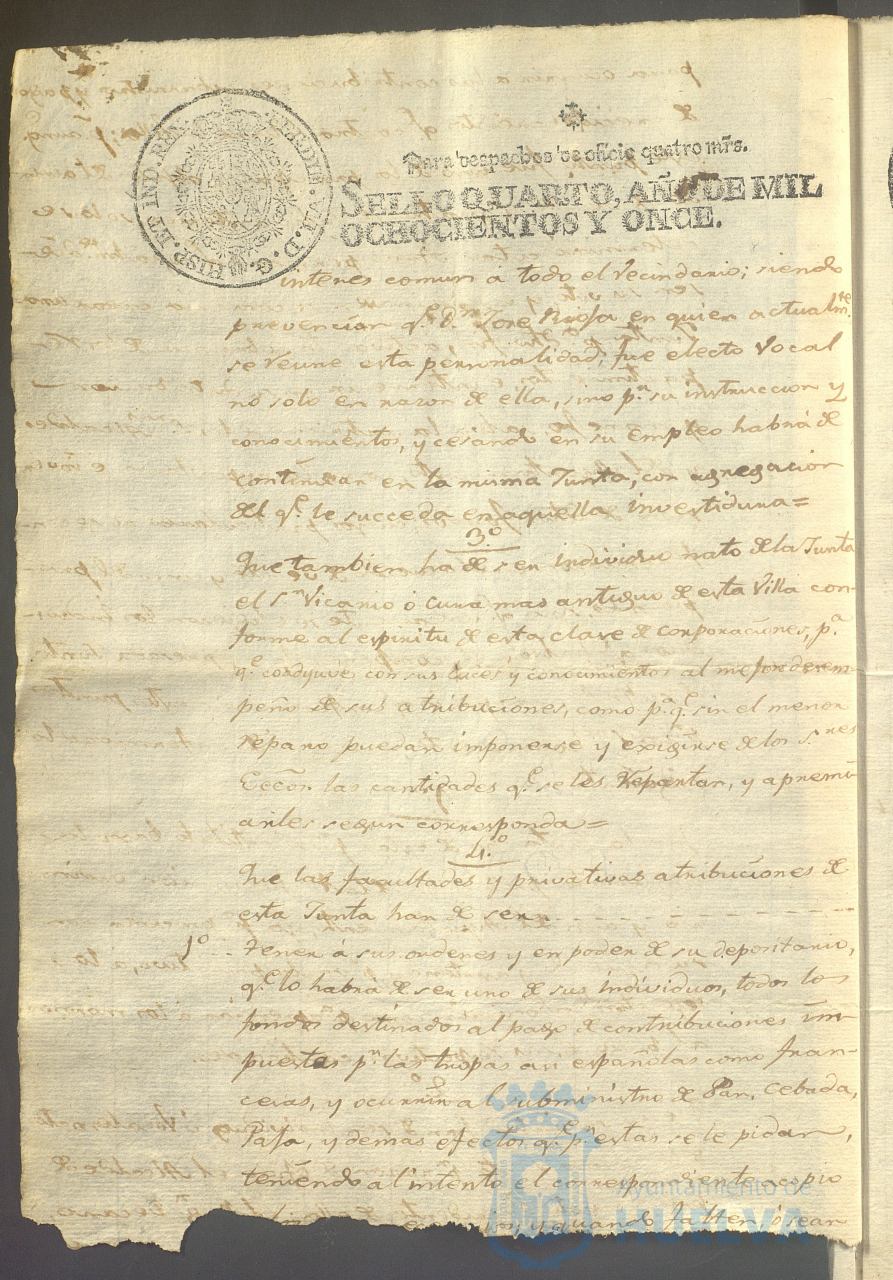 FERDIN. VII. D. G. HISP. ET IND. REX.
Para despachos de oficio quatro mrs.
SELLO QUARTO, AÑO DE MIL
OCHOCIENTOS Y ONCE.
interes comun a todo el Vecindario; siendo
prevencion q.e D.n Jose Rioja en quien actualm.te
se reune esta personalidad, fue electo Vocal
no solo en razon de ella, sino p.r su instruccion y
conocimientos, y cesando en su empleo habrá de
continuar en la misma Junta, con agregacion
del q.e le succeda en aquella investidura=
3.º
Que tambien ha de ser individuo nato de la Junta
el S.r Vicario ó Cura mas antiguo de esta Villa con-
forme al espiritu de esta clase de corporaciones, p.a
q.e coadyuve con sus luces y conocimientos al mejor desem-
peño de sus atribuciones, como p.a q.e sin el menor
reparo puedan imponerse y exigirse de los S.res
Eccos. las cantidades q.e se les repartan, y apremi-
arles segun corresponda=
4.º
Que las facultades y privativas atribuciones de
esta Junta han de ser
1º Tener á sus ordenes y en poder de su depositario,
q.e lo habrá de ser uno de sus individuos, todos los
fondos destinados al pago de contribuciones im-
puestas p.r las tropas asi españolas como fran-
cesas, y ocurrir al subministro de Pan, Cebada,
Paja, y demas efectos q.e p.r estas se le pidan,
teniendo al intento el correspondiente acopio
y quando falten ó sean
Ayuntamiento de
HUELVA